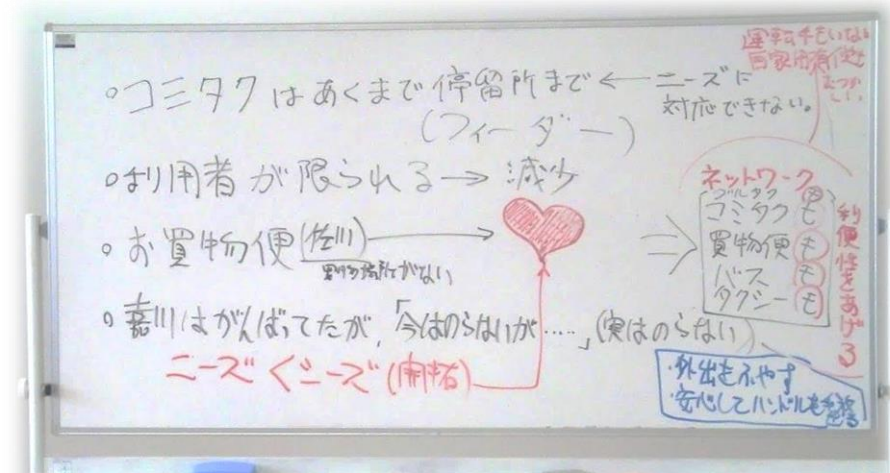 運転手もいない
自家用有償も
むつかしい
○コミタクはあくまで停留所まで ← ニーズに
対応できない。
(フィーダー)
○利用者が限られる → 減少
○お買物便(佐川)
○嘉川はがんばってたが、「今はのらないが……」(実はのらない)
ニーズ<シーズ(開拓)
ネットワーク
コミタクも
買物便も
バスも
タクシーも
利便性をあげる
・外出をふやす
・安心してハンドルを